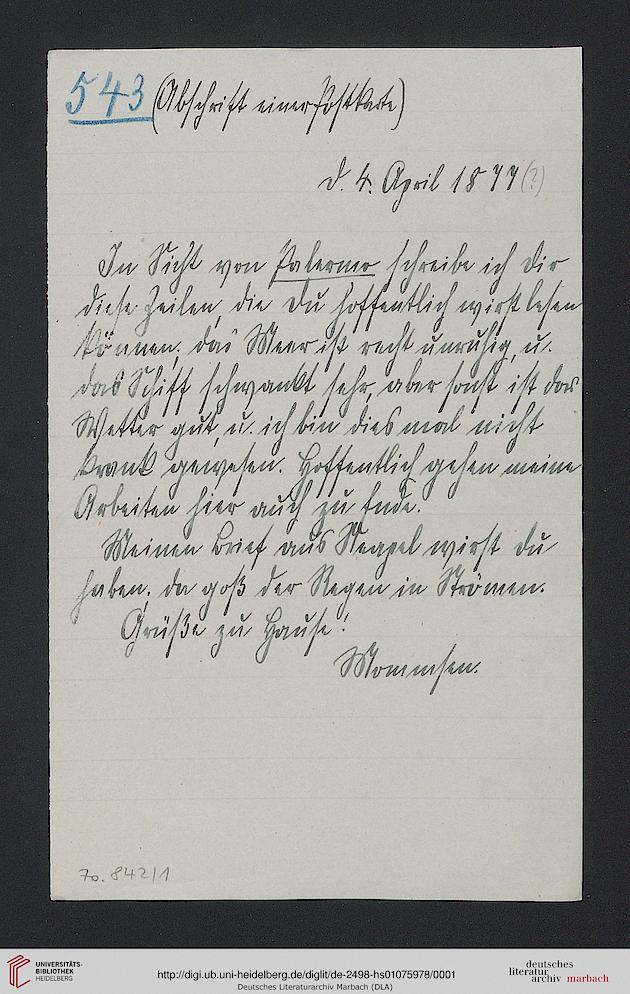 543
(Abschrift einer Postkarte)
d. 4. April 1877(?)
In Sicht von Palermo schreibe ich Dir
diese Zeilen, die Du hoffentlich wirst lesen
können; das Meer ist recht unruhig, u.
das Schiff schwankt sehr, aber sonst ist das
Wetter gut, u. ich bin diesmal nicht
krank gewesen. Hoffentlich gehen meine
Arbeiten hier auch zu Ende.
Meinen Brief aus Neapel wirst Du
haben; da goß der Regen in Strömen.
Grüße zu Hause!
Mommsen.
70.842/1
UNIVERSITÄTS-
BIBLIOTHEK
HEIDELBERG
http://digi.ub.uni-heidelberg.de/diglit/de-2498-hs01075978/0001
Deutsches Literaturarchiv Marbach (DLA)
deutsches
literatur
archiv marbach